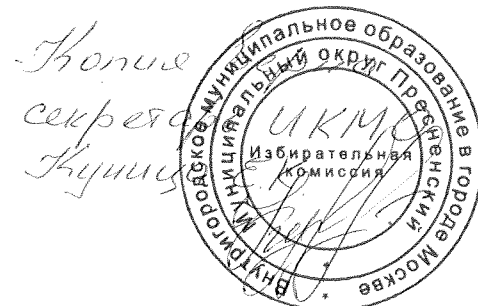 Копия
секретарь ИКМО
Внутригородское муниципальное образование в городе Москве
Муниципальный округ Пресненский
Избирательная
комиссия